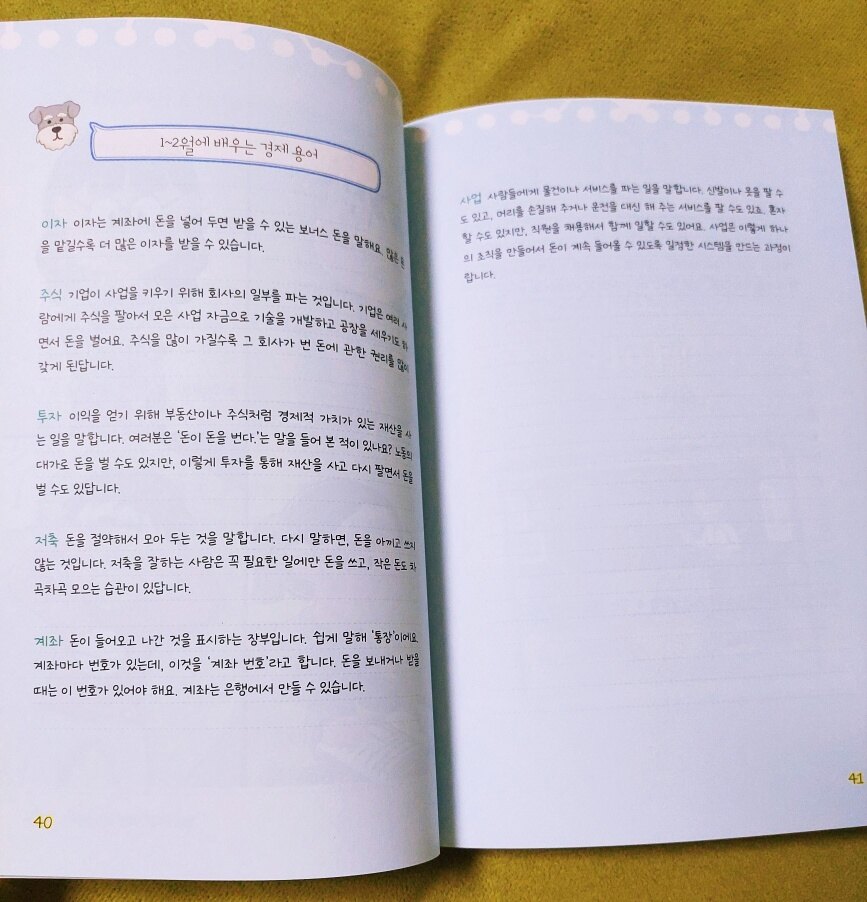 1~2월에 배우는 경제 용어
이자 이자는 계좌에 돈을 넣어 두면 받을 수 있는 보너스 돈을 말해요. 많은 돈
을 맡길수록 더 많은 이자를 받을 수 있습니다.
주식 기업이 사업을 키우기 위해 회사의 일부를 파는 것입니다. 기업은 여러 사
람에게 주식을 팔아서 모은 사업 자금으로 기술을 개발하고 공장을 세우기도 하
면서 돈을 벌어요. 주식을 많이 가질수록 그 회사가 번 돈에 관한 권리를 많이
갖게 된답니다.
투자 이익을 얻기 위해 부동산이나 주식처럼 경제적 가치가 있는 재산을 사
는 일을 말합니다. 여러분은 '돈이 돈을 번다.'는 말을 들어 본 적이 있나요? 노동의
대가로 돈을 벌 수도 있지만, 이렇게 투자를 통해 재산을 사고 다시 팔면서 돈을
벌 수도 있답니다.
저축 돈을 절약해서 모아 두는 것을 말합니다. 다시 말하면, 돈을 아끼고 쓰지
않는 것입니다. 저축을 잘하는 사람은 꼭 필요한 일에만 돈을 쓰고, 작은 돈도 차
곡차곡 모으는 습관이 있답니다.
계좌 돈이 들어오고 나간 것을 표시하는 장부입니다. 쉽게 말해 '통장'이에요.
계좌마다 번호가 있는데, 이것을 '계좌 번호'라고 합니다. 돈을 보내거나 받을
때는 이 번호가 있어야 해요. 계좌는 은행에서 만들 수 있습니다.
40
사업 사람들에게 물건이나 서비스를 파는 일을 말합니다. 신발이나 옷을 팔 수
도 있고, 머리를 손질해 주거나 운전을 대신 해 주는 서비스를 팔 수도 있죠. 혼자
할 수도 있지만, 직원을 채용해서 함께 일할 수도 있어요. 사업은 이렇게 하나
의 조직을 만들어서 돈이 계속 들어올 수 있도록 일정한 시스템을 만드는 과정이
랍니다.
41